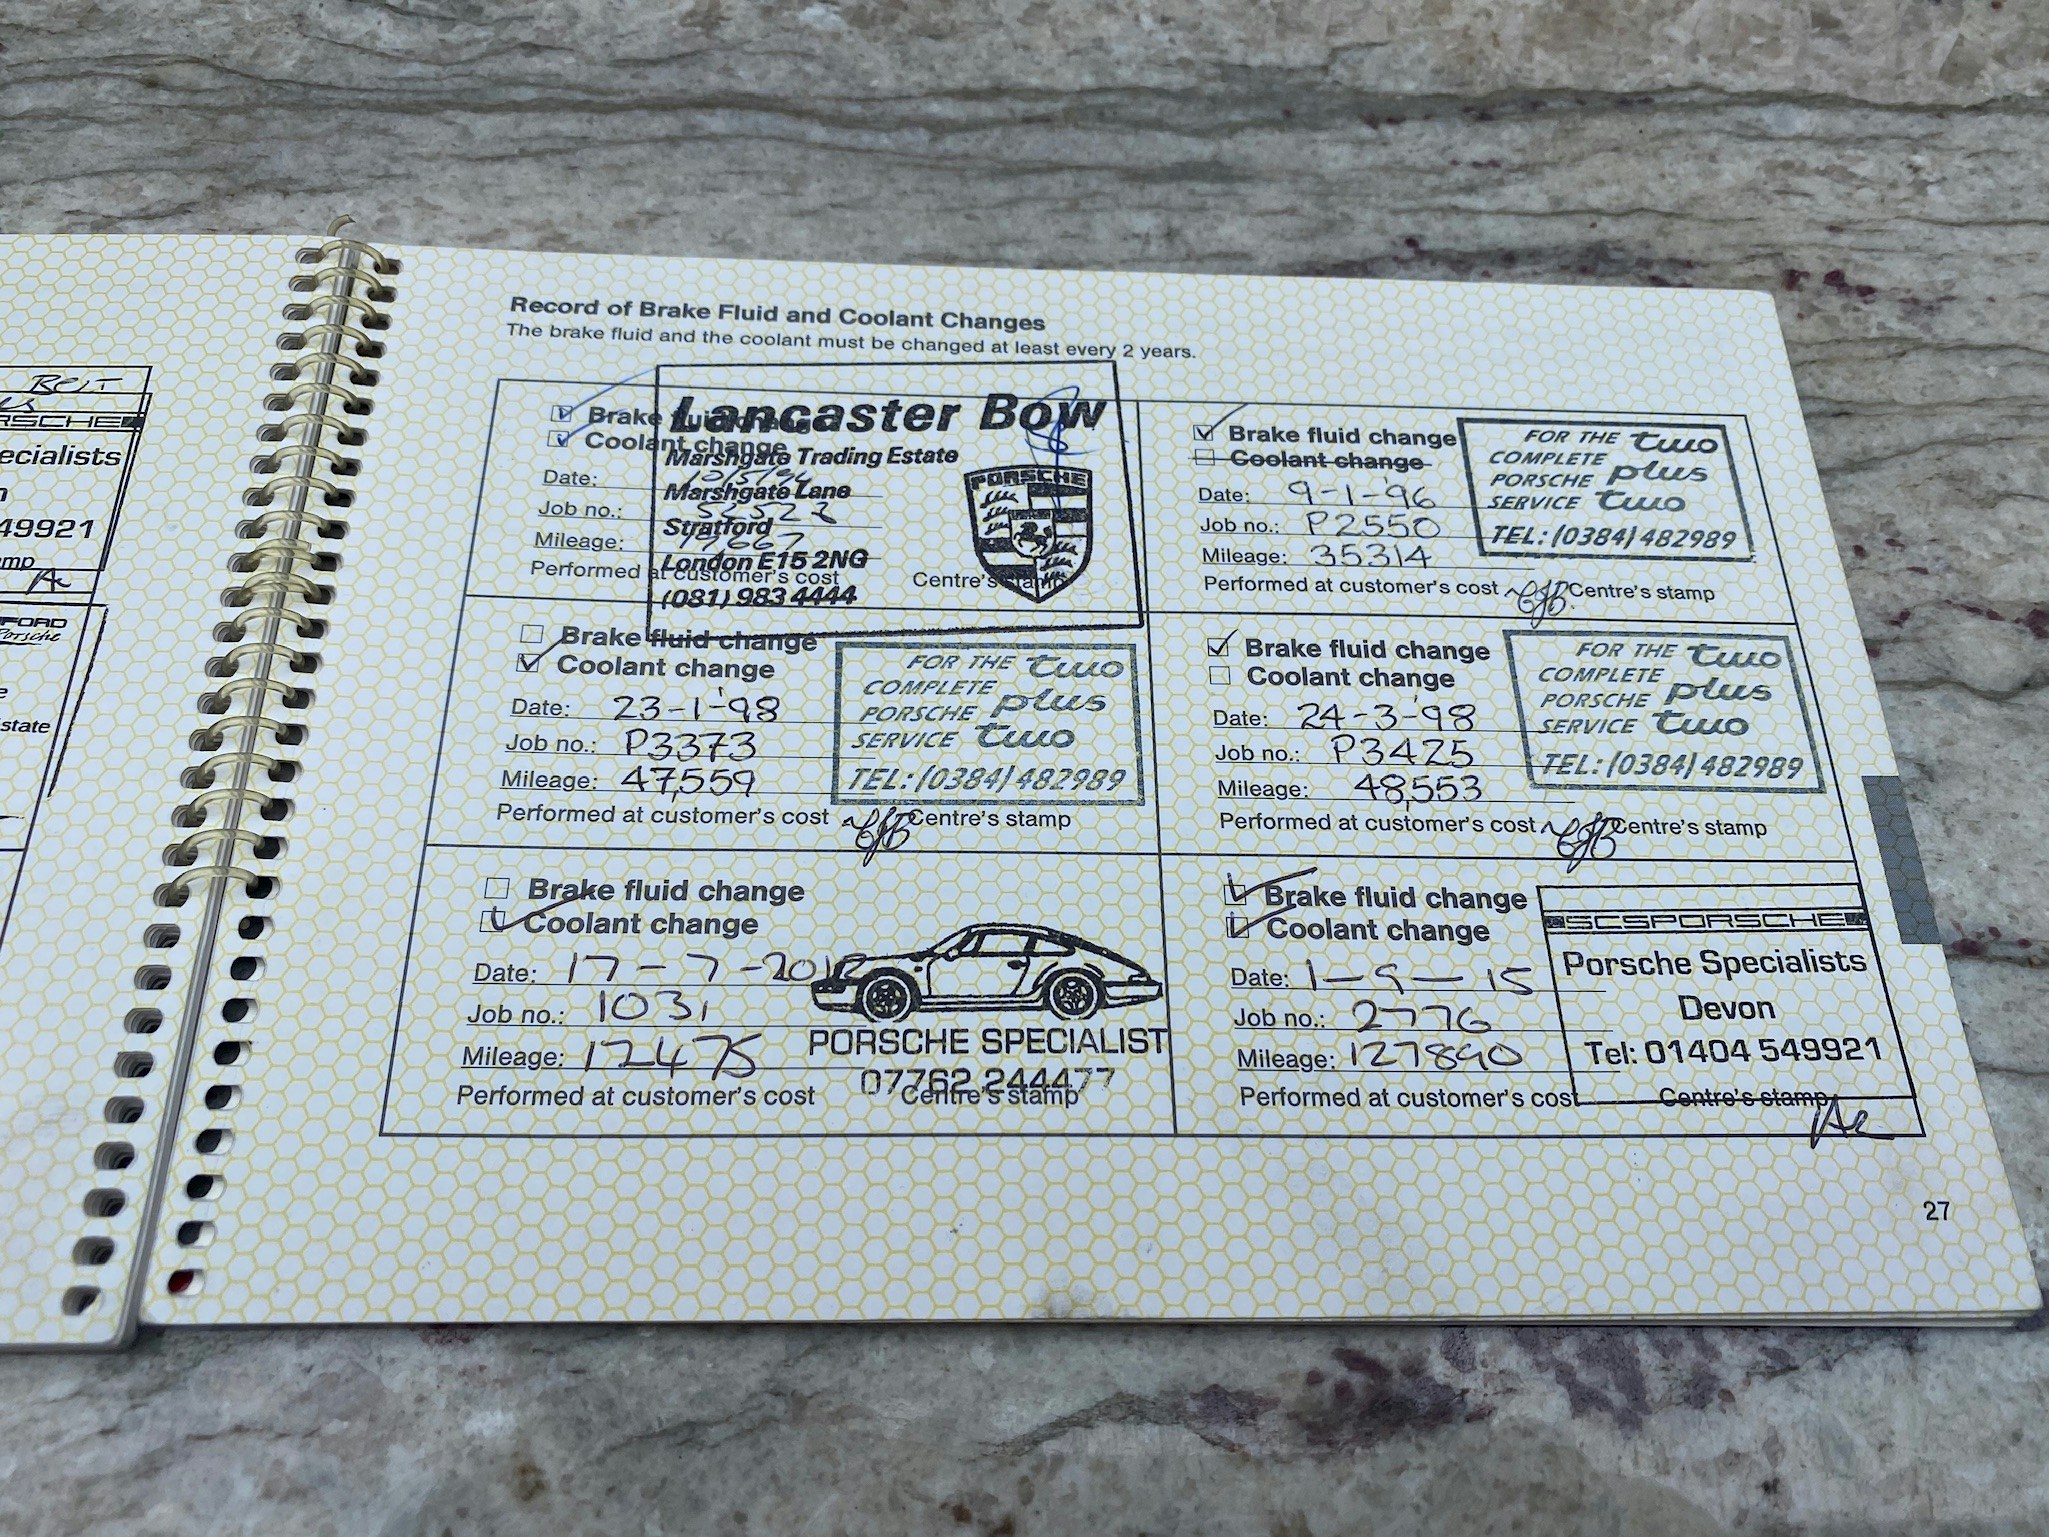 BELT
RSCHE
ecialists
49921
mp
FORD
Porsche
state
Record of Brake Fluid and Coolant Changes
The brake fluid and the coolant must be changed at least every 2 years.
Brake fluid change
Coolant change
Date:
Job no.:
Mileage:
Performed at customer's cost
Centre's stamp
Lancaster Bow
Marshgate Trading Estate
Marshgate Lane
Stratford
London E15 2NG
(081) 983 4444
PORSCHE
Brake fluid change
Coolant change
Date: 9-1-'96
Job no.: P2550
Mileage: 35314
Performed at customer's cost
Centre's stamp
FOR THE two
COMPLETE
PORSCHE plus
SERVICE two
TEL: (0384) 482989
Brake fluid change
Coolant change
Date: 23-1-'98
Job no.: P3373
Mileage: 47,559
Performed at customer's cost
Centre's stamp
FOR THE two
COMPLETE
PORSCHE plus
SERVICE two
TEL: (0384) 482989
Brake fluid change
Coolant change
Date: 24-3-'98
Job no.: P3425
Mileage: 48,553
Performed at customer's cost
Centre's stamp
FOR THE two
COMPLETE
PORSCHE plus
SERVICE two
TEL: (0384) 482989
Brake fluid change
Coolant change
Date: 17-7-2012
Job no.: 1031
Mileage: 12475
Performed at customer's cost
Centre's stamp
PORSCHE SPECIALIST
07762 244477
Brake fluid change
Coolant change
Date: 1-9-15
Job no.: 2776
Mileage: 127890
Performed at customer's cost
Centre's stamp
SCSPORSCHE
Porsche Specialists
Devon
Tel: 01404 549921
27